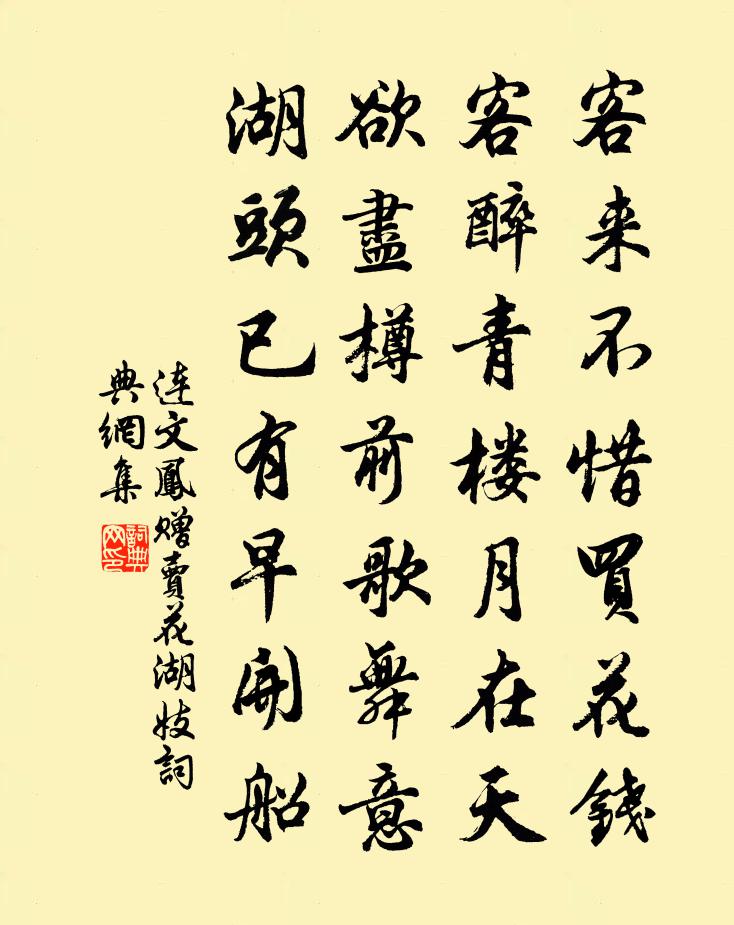 客来不惜買花錢
客醉青楼月在天
欲盡樽前歌舞意
湖頭已有早開船
連文鳳赠賣花湖妓詞
典網集
詞典网印